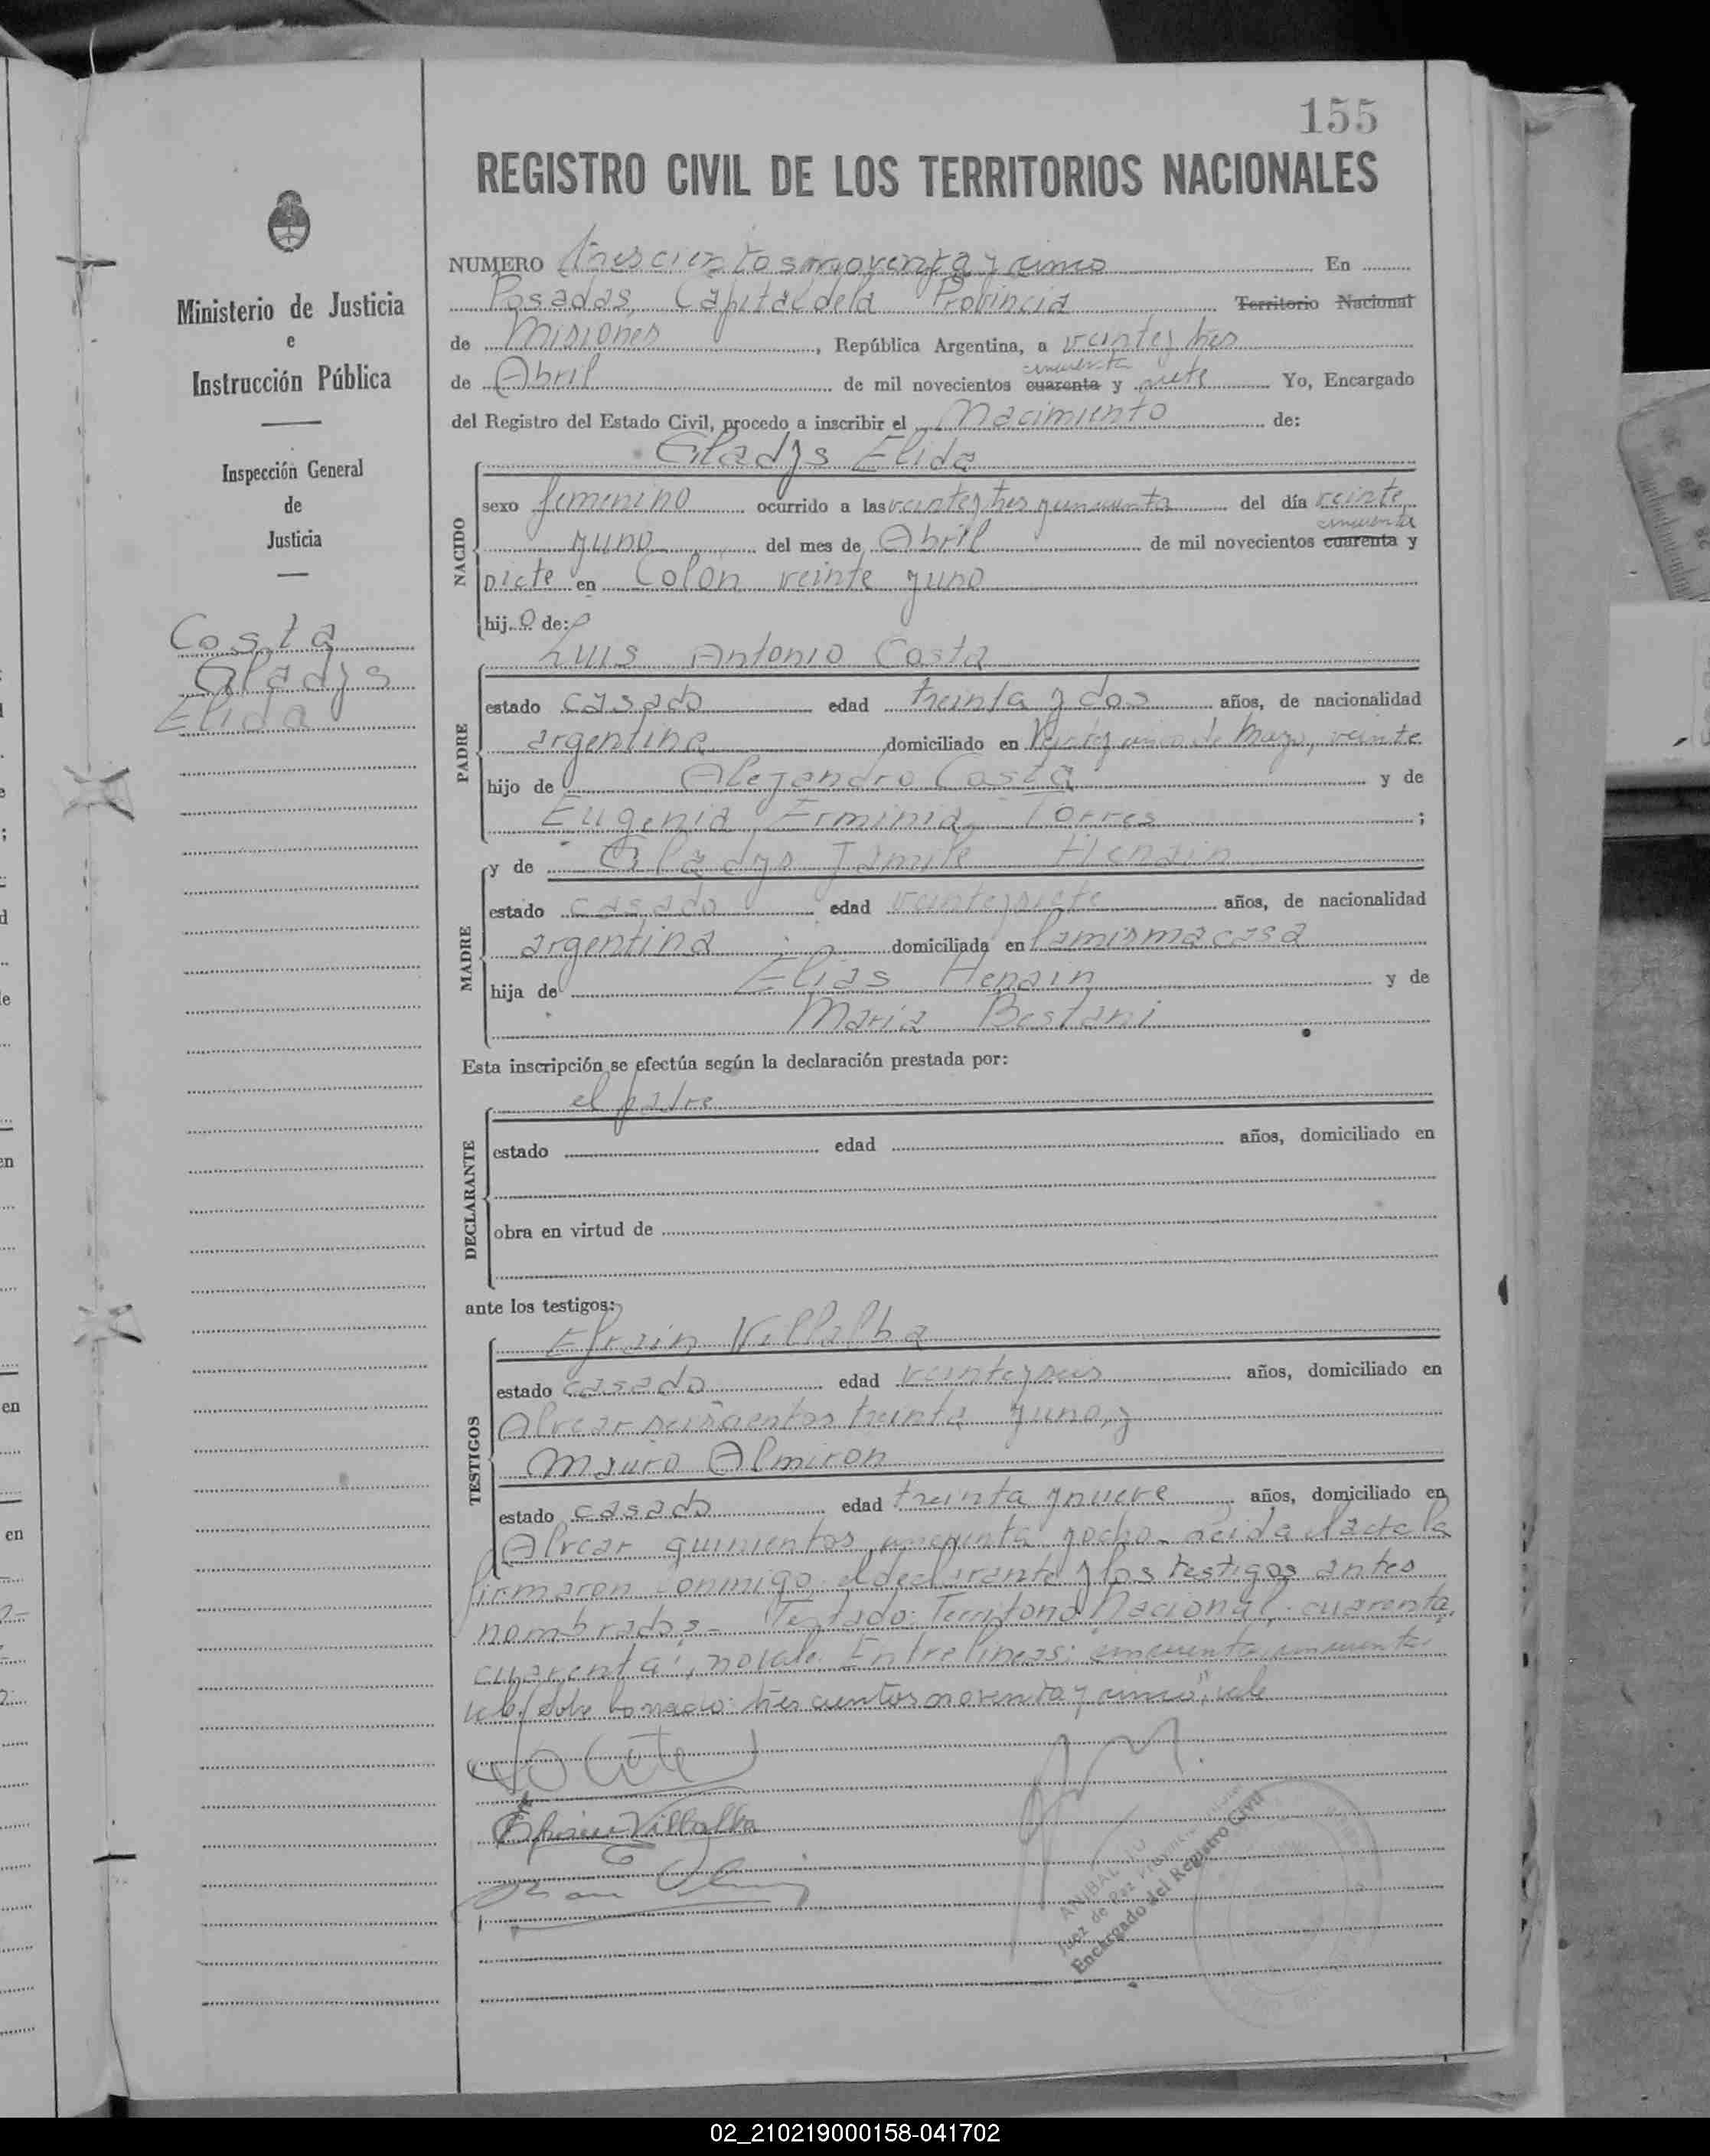 155
REGISTRO CIVIL DE LOS TERRITORIOS NACIONALES
Ministerio de Justicia
e
Instrucción Pública
Inspección General
de
Justicia
Costa
Gladys
Elida
NUMERO trescientos noventa y cinco En
Posadas, Capital de la Provincia Territorio Nacional
de Misiones, República Argentina, a veinte y tres
cincuenta
de Abril de mil novecientos cuarenta y siete Yo, Encargado
del Registro del Estado Civil, procedo a inscribir el Nacimiento de:
Gladys Elida
NACIDO
sexo femenino ocurrido a las veinte y tres y cincuenta del día veinte
cincuenta
y uno del mes de Abril de mil novecientos cuarenta y
siete en Colon veinte y uno
hij a de:
Luis Antonio Costa
PADRE
estado casado edad treinta y dos años, de nacionalidad
argentina domiciliado en Veinte y cinco de Mayo, veinte
hijo de Alejandro Costa y de
Eugenia Erminia Torres ;
MADRE
y de Gladys Jamile Henain
estado casado edad veinte y siete años, de nacionalidad
argentina domiciliada en la misma casa
hija de Elias Henain y de
Maria Bestani
Esta inscripción se efectúa según la declaración prestada por:
el padre
DECLARANTE
estado edad años, domiciliado en
obra en virtud de
ante los testigos:
Efrain Villalba
TESTIGOS
estado casado edad veinte y seis años, domiciliado en
Alvear seiscientos treinta y uno, y
Mauro Almiron
estado casado edad treinta y nueve años, domiciliado en
Alvear quinientos cincuenta y ocho. Leida el acta la
firmaron conmigo el declarante y los testigos antes
nombrados - Testado: Territorio Nacional, cuarenta,
cuarenta, no vale. Entre lineas: cincuenta cincuenta
vale. Sobre borrado: trescientos noventa y cinco", vale
Efrain Villalba
ANIBAL
Juez de Paz
Encargado del Registro Civil
02_210219000158-041702